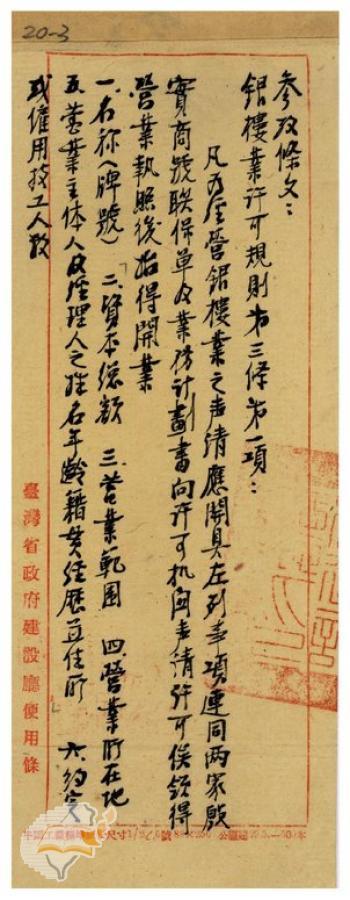 20-3
參攷條文：
銀樓業許可規則第三條第一項：
凡為經營銀樓業之声請應開具左列事項連同两家殷
實商號联保单及業務计劃書向许可机関声请许可俟领得
營業執照後始得開業
一、名称（牌號） 二、資本總額 三、营業範圍 四、營業所在地
五、营業主体人及經理人之姓名年齡籍貫经歷並住所 六、約定
或僱用技工人数
臺灣省政府建設廳便用條